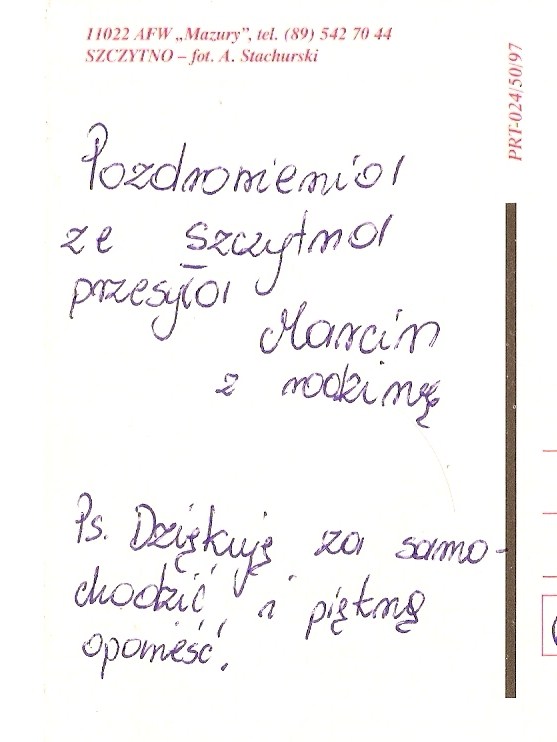 11022 AFW „Mazury”, tel. (89) 542 70 44
SZCZYTNO – fot. A. Stachurski
PRT-024/50/97
Pozdrowienia
ze Szczytna
przesyła
Marcin
z rodziną
Ps. Dziękuję za samo-
chodzić i piękną
opowieść.